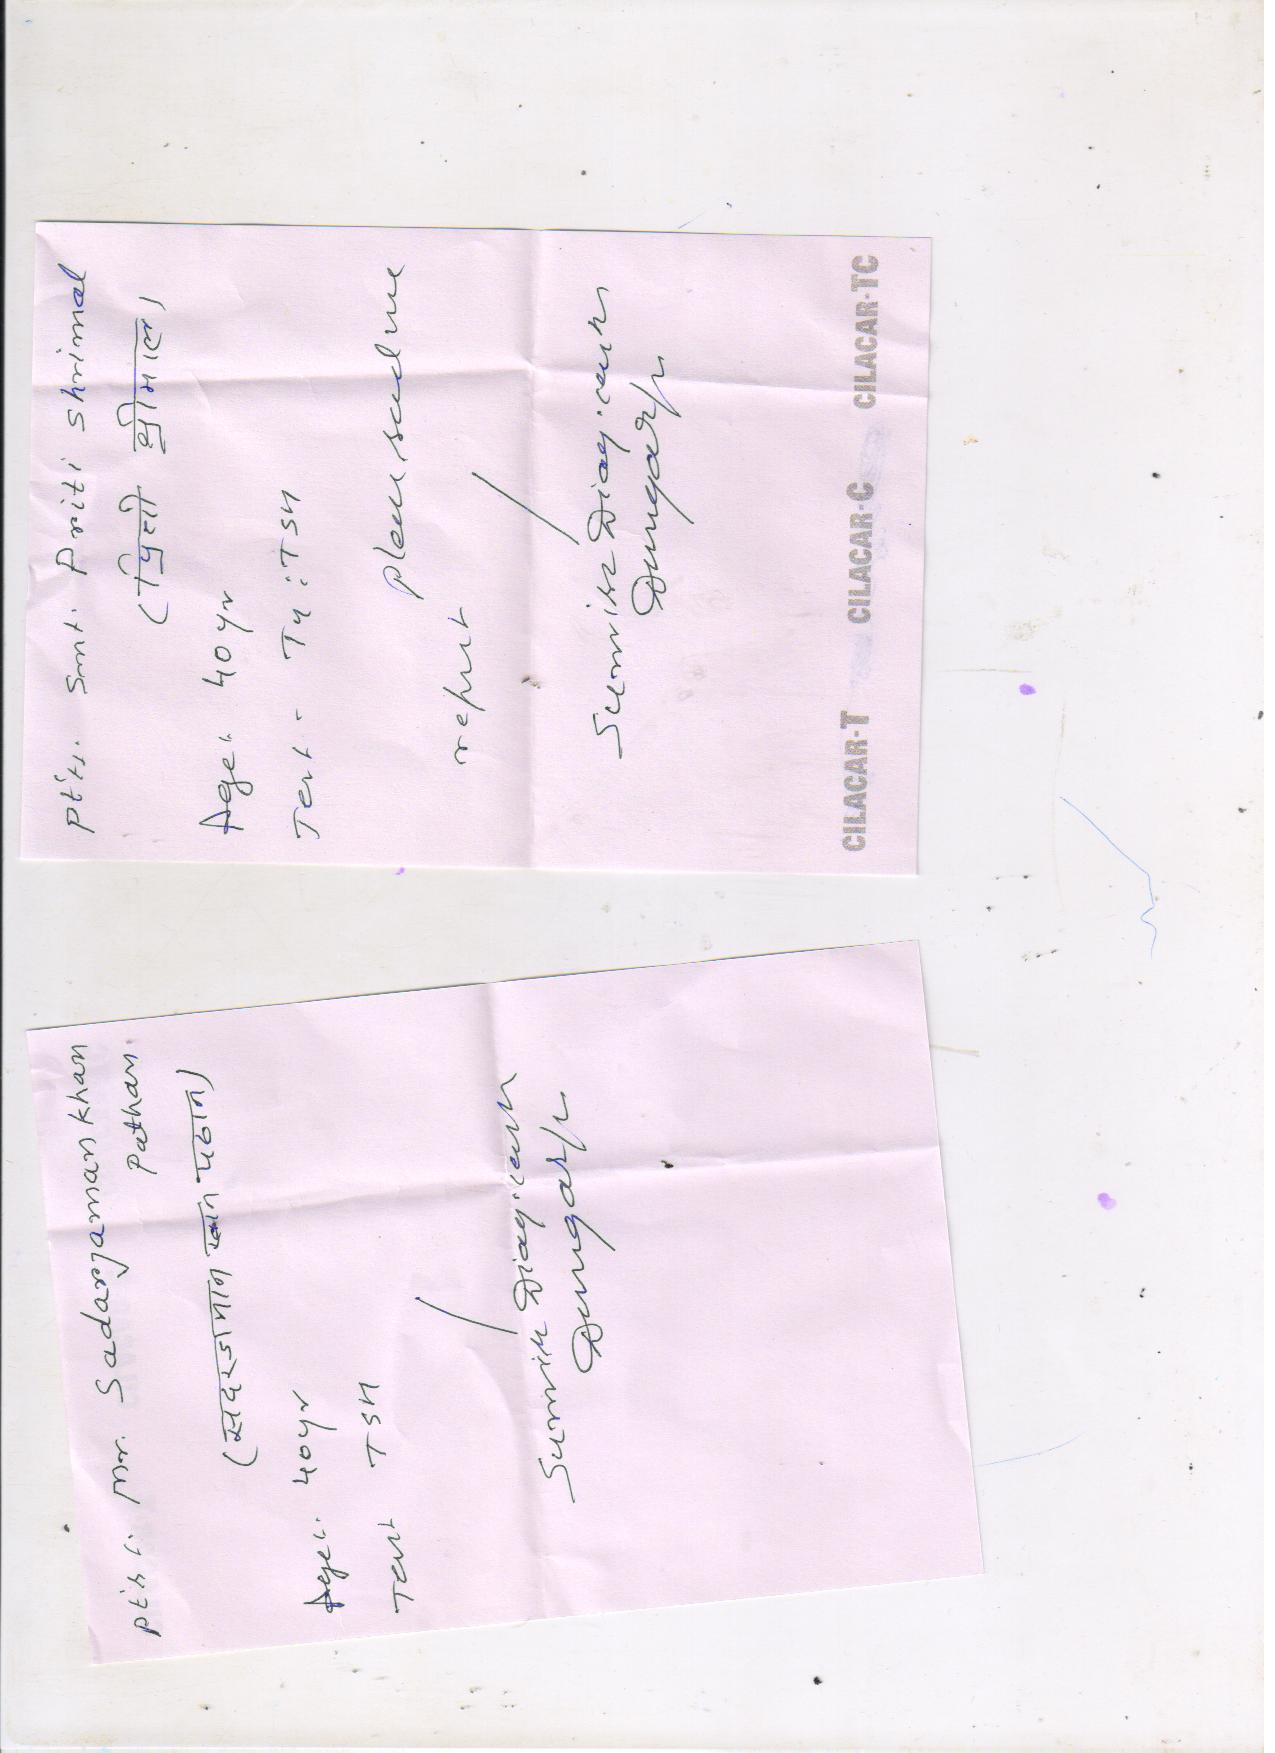 Pt's. Smt. Priti Shrimal
(प्रिती श्रीमाल)
Age:. 40yr
Test - T4 : TSH
Please send me
report
Sumik Diag. cent
Dungarpur
CILACAR-T CILACAR-C CILACAR-TC
Pt's:. Mr. Sadarjamankhan
Pathan.
(सदरजमान खान पठान)
Age:. 40yr
Test TSH
Diag. cent
Dungarpur